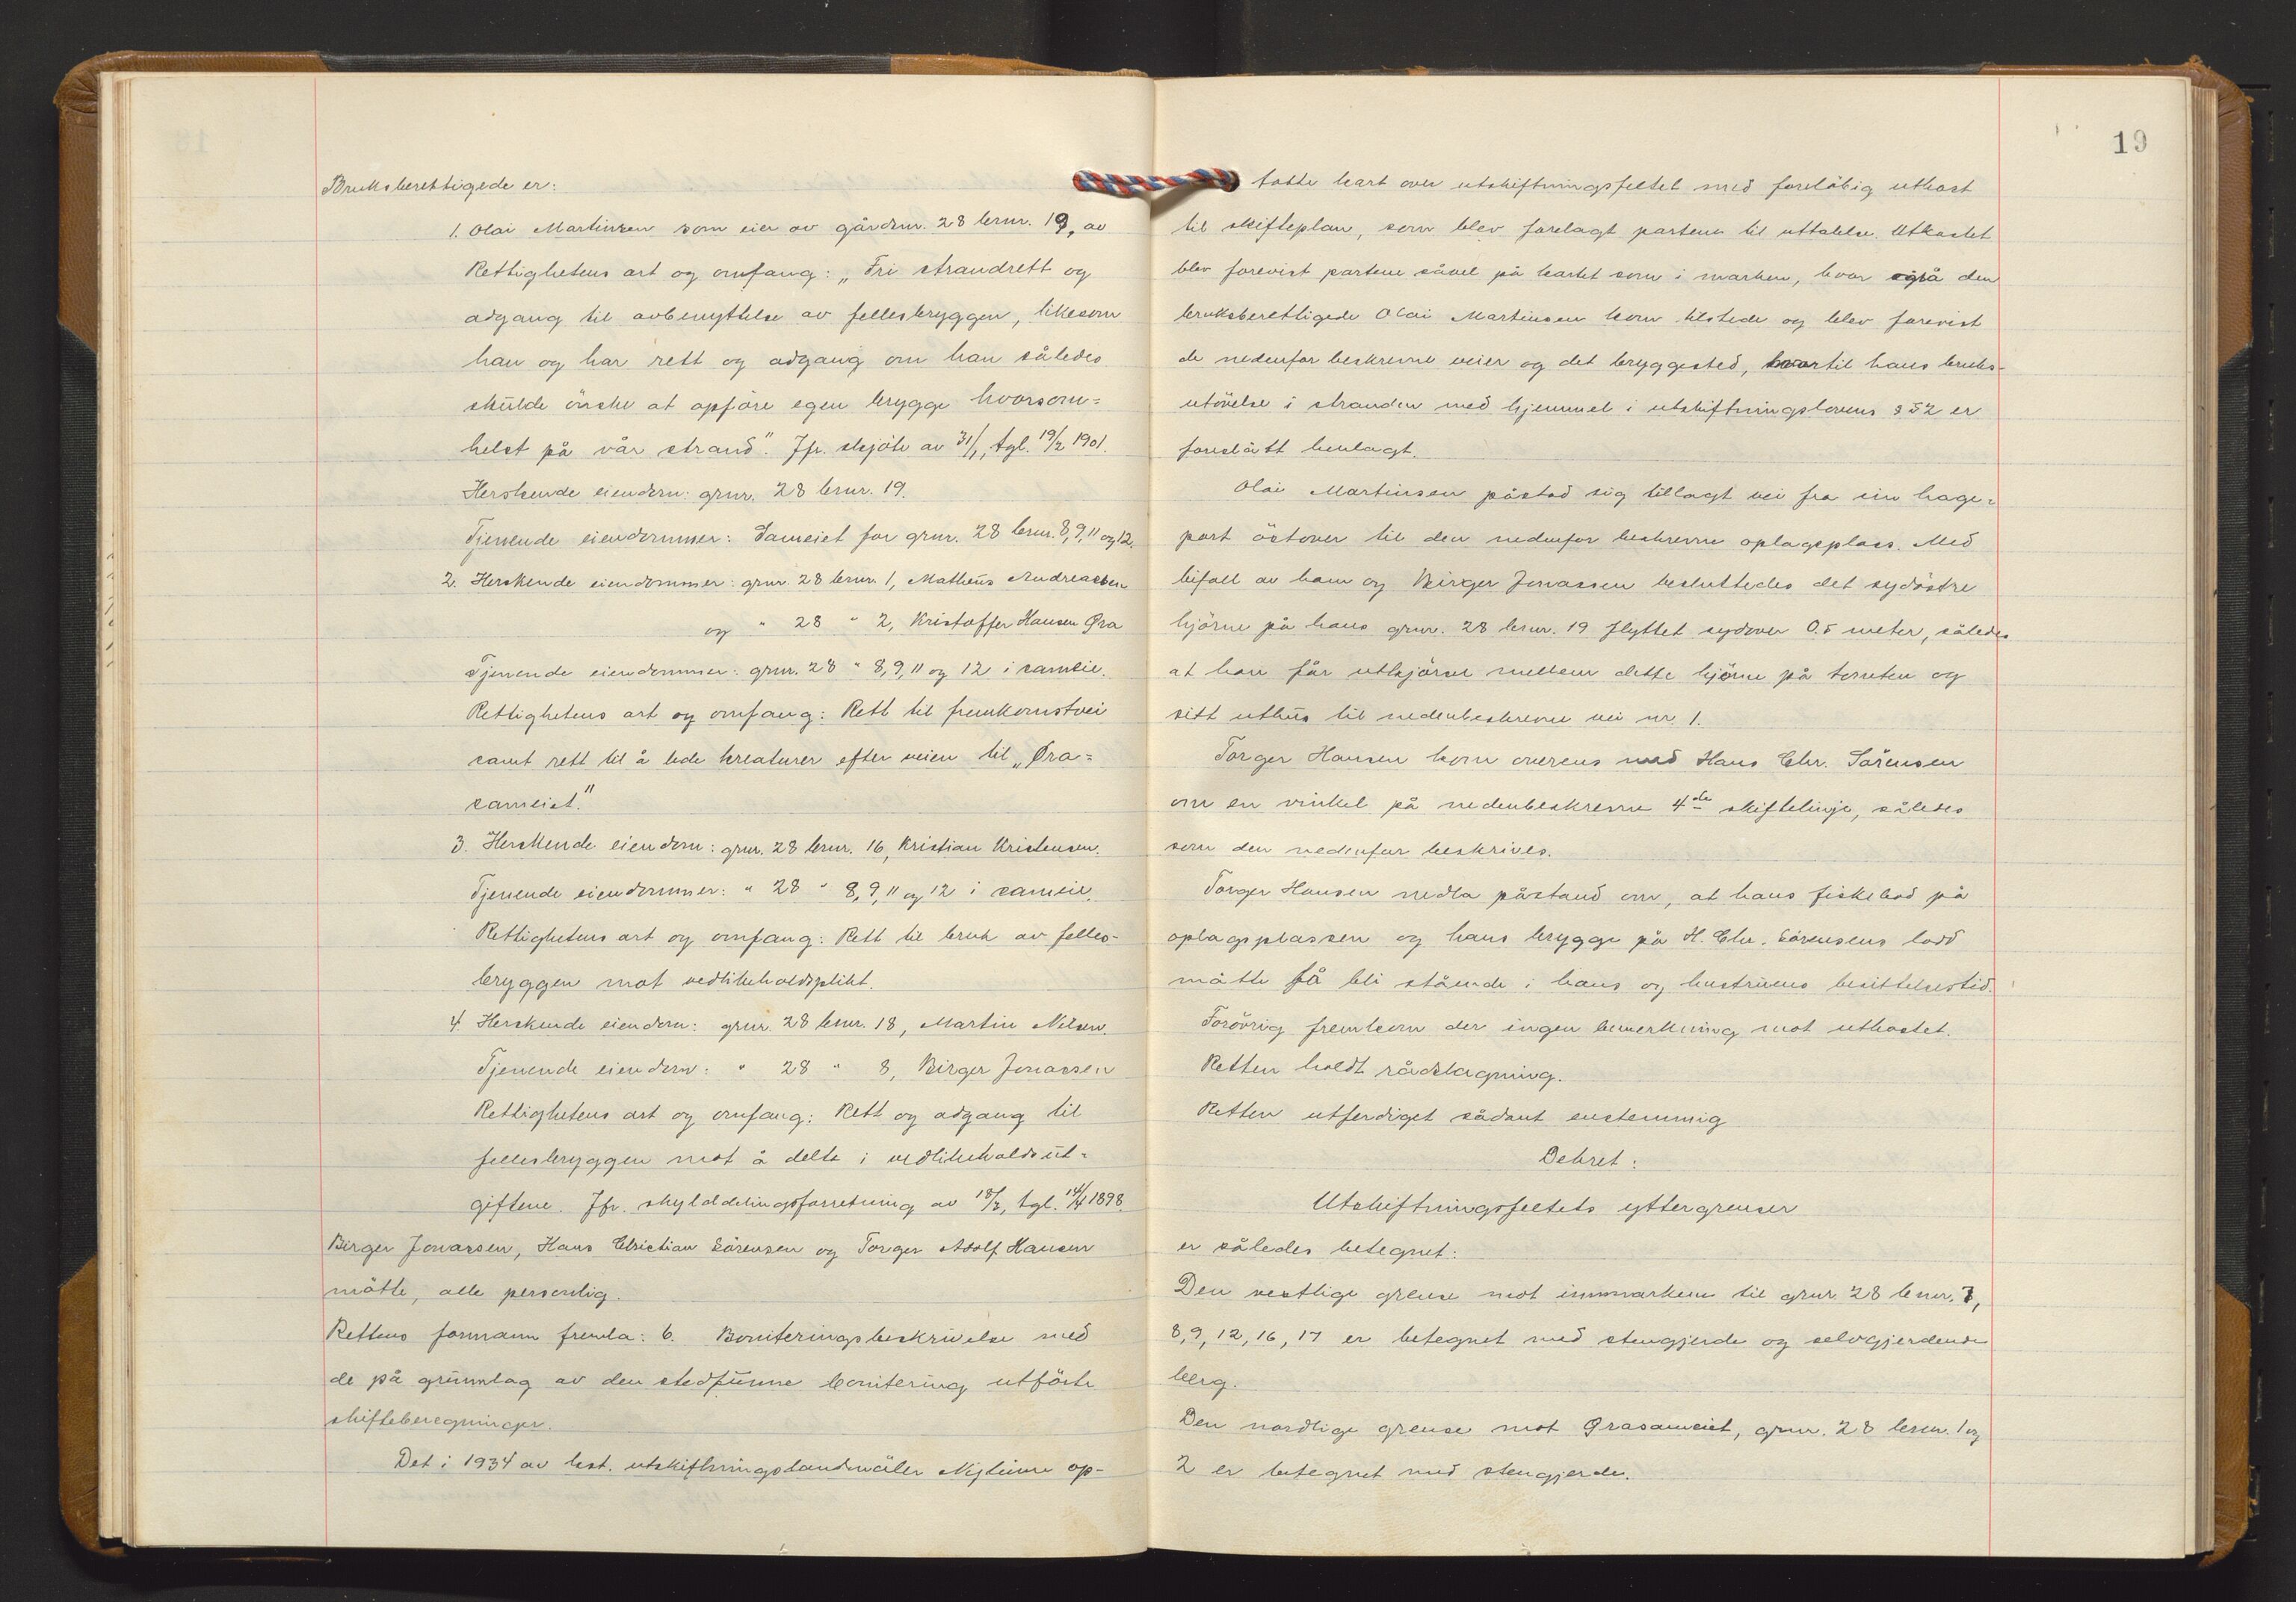 Bruksberettigede er:
1. Olai Martinsen som eier av gårdsnr. 28 brnr. 19, av
Rettighetens art og omfang: „Fri strandrett og
adgang til avbenyttelse av fellesbryggen, likesom
han og har rett og adgang om han således
skulde önske at opföre egen brygge hvorsom=
helst på vår strand". Jfr. skjöte av 31/1, tgl. 19/2 1901.
Herskende eiendom: grnr. 28 brnr. 19.
Tjenende eiendommer: Sameiet for grnr. 28 brnr. 8, 9, 11 og 12.
2. Herskende eiendommer: grnr. 28 brnr. 1, Matheus Andreassen
og " 28 " 2, Kristoffer Hansen Øra
Tjenende eiendommer: grnr. 28 " 8, 9, 11 og 12 i sameie.
Rettighetens art og omfang: Rett til fremkomstvei
samt rett til å lede kreaturer efter veien til „Øra=
sameiet."
3. Herskende eiendom: grnr. 28 brnr. 16, Kristian Kristensen.
Tjenende eiendommer: " 28 " 8, 9, 11 og 12 i sameie.
Rettighetens art og omfang: Rett til bruk av felles-
bryggen mot vedlikeholdsplikt.
4. Herskende eiendom: grnr. 28 brnr. 18, Martin Nilsen.
Tjenende eiendom: " 28 " 8, Birger Jonassen
Rettighetens art og omfang: Rett og adgang til
fellesbryggen mot å delta i vedlikeholdsut=
giftene. Jfr. skylddelingsforretning av 18/3, tgl. 14/4 1898.
Birger Jonassen, Hans Christian Sörensen og Torger Adolf Hansen
mötte, alle personlig.
Rettens formann fremla: 6. Boniteringsbeskrivelse med
de på grunnlag av den stedfunne bonitering utförte
skifteberegninger.
Det i 1934 av kst. utskiftningslandmåler op-
19
tatte kart over utskiftningsfeltet med foreløbig utkast
til skifteplan, som blev forelagt partene til uttalelse. Utkastet
blev forevist partene såvel på kartet som i marken, hvor også den
bruksberettigede Olai Martinsen kom tilstede og blev forevist
de nedenfor beskrevne veier og det bryggested, hvortil hans bruks-
utövelse i stranden med hjemmel i utskiftningslovens § 52 er
foreslått henlagt.
Olai Martinsen påstod sig tillagt vei fra sin hage=
port östover til den nedenfor beskrevne oplagsplass. Med
bifall av ham og Birger Jonassen besluttedes det sydöstre
hjörne på hans grnr. 28 brnr. 19 flyttet sydover 0.5 meter, således
at han får utkjörsel mellem dette hjörne på tomten og
sitt uthus til nedenbeskrevne vei nr. 1.
Torger Hansen kom overens med Hans Chr. Sörensen
om en vinkel på nedenbeskrevne 4de skiftelinje, således
som den nedenfor beskrives.
Torger Hansen nedla påstand om, at hans fiskebod på
oplagsplassen og hans brygge på H. Chr. Sörensens lodd
måtte få bli stående i hans og hustruens besittelsestid.
Forövrig fremkom der ingen bemerkning mot utkastet.
Retten holdt rådslagning.
Retten utferdiget sådant enstemmig
Dekret:
Utskiftningsfeltets yttergrenser
er således betegnet:
Den vestlige grense mot innmarken til grnr. 28 brnr. 7,
8, 9, 12, 16, 17 er betegnet med stengjerde og selvgjerdende
berg.
Den nordlige grense mot Ørasameiet, grnr. 28 brnr. 1 og
2 er betegnet med stengjerde.